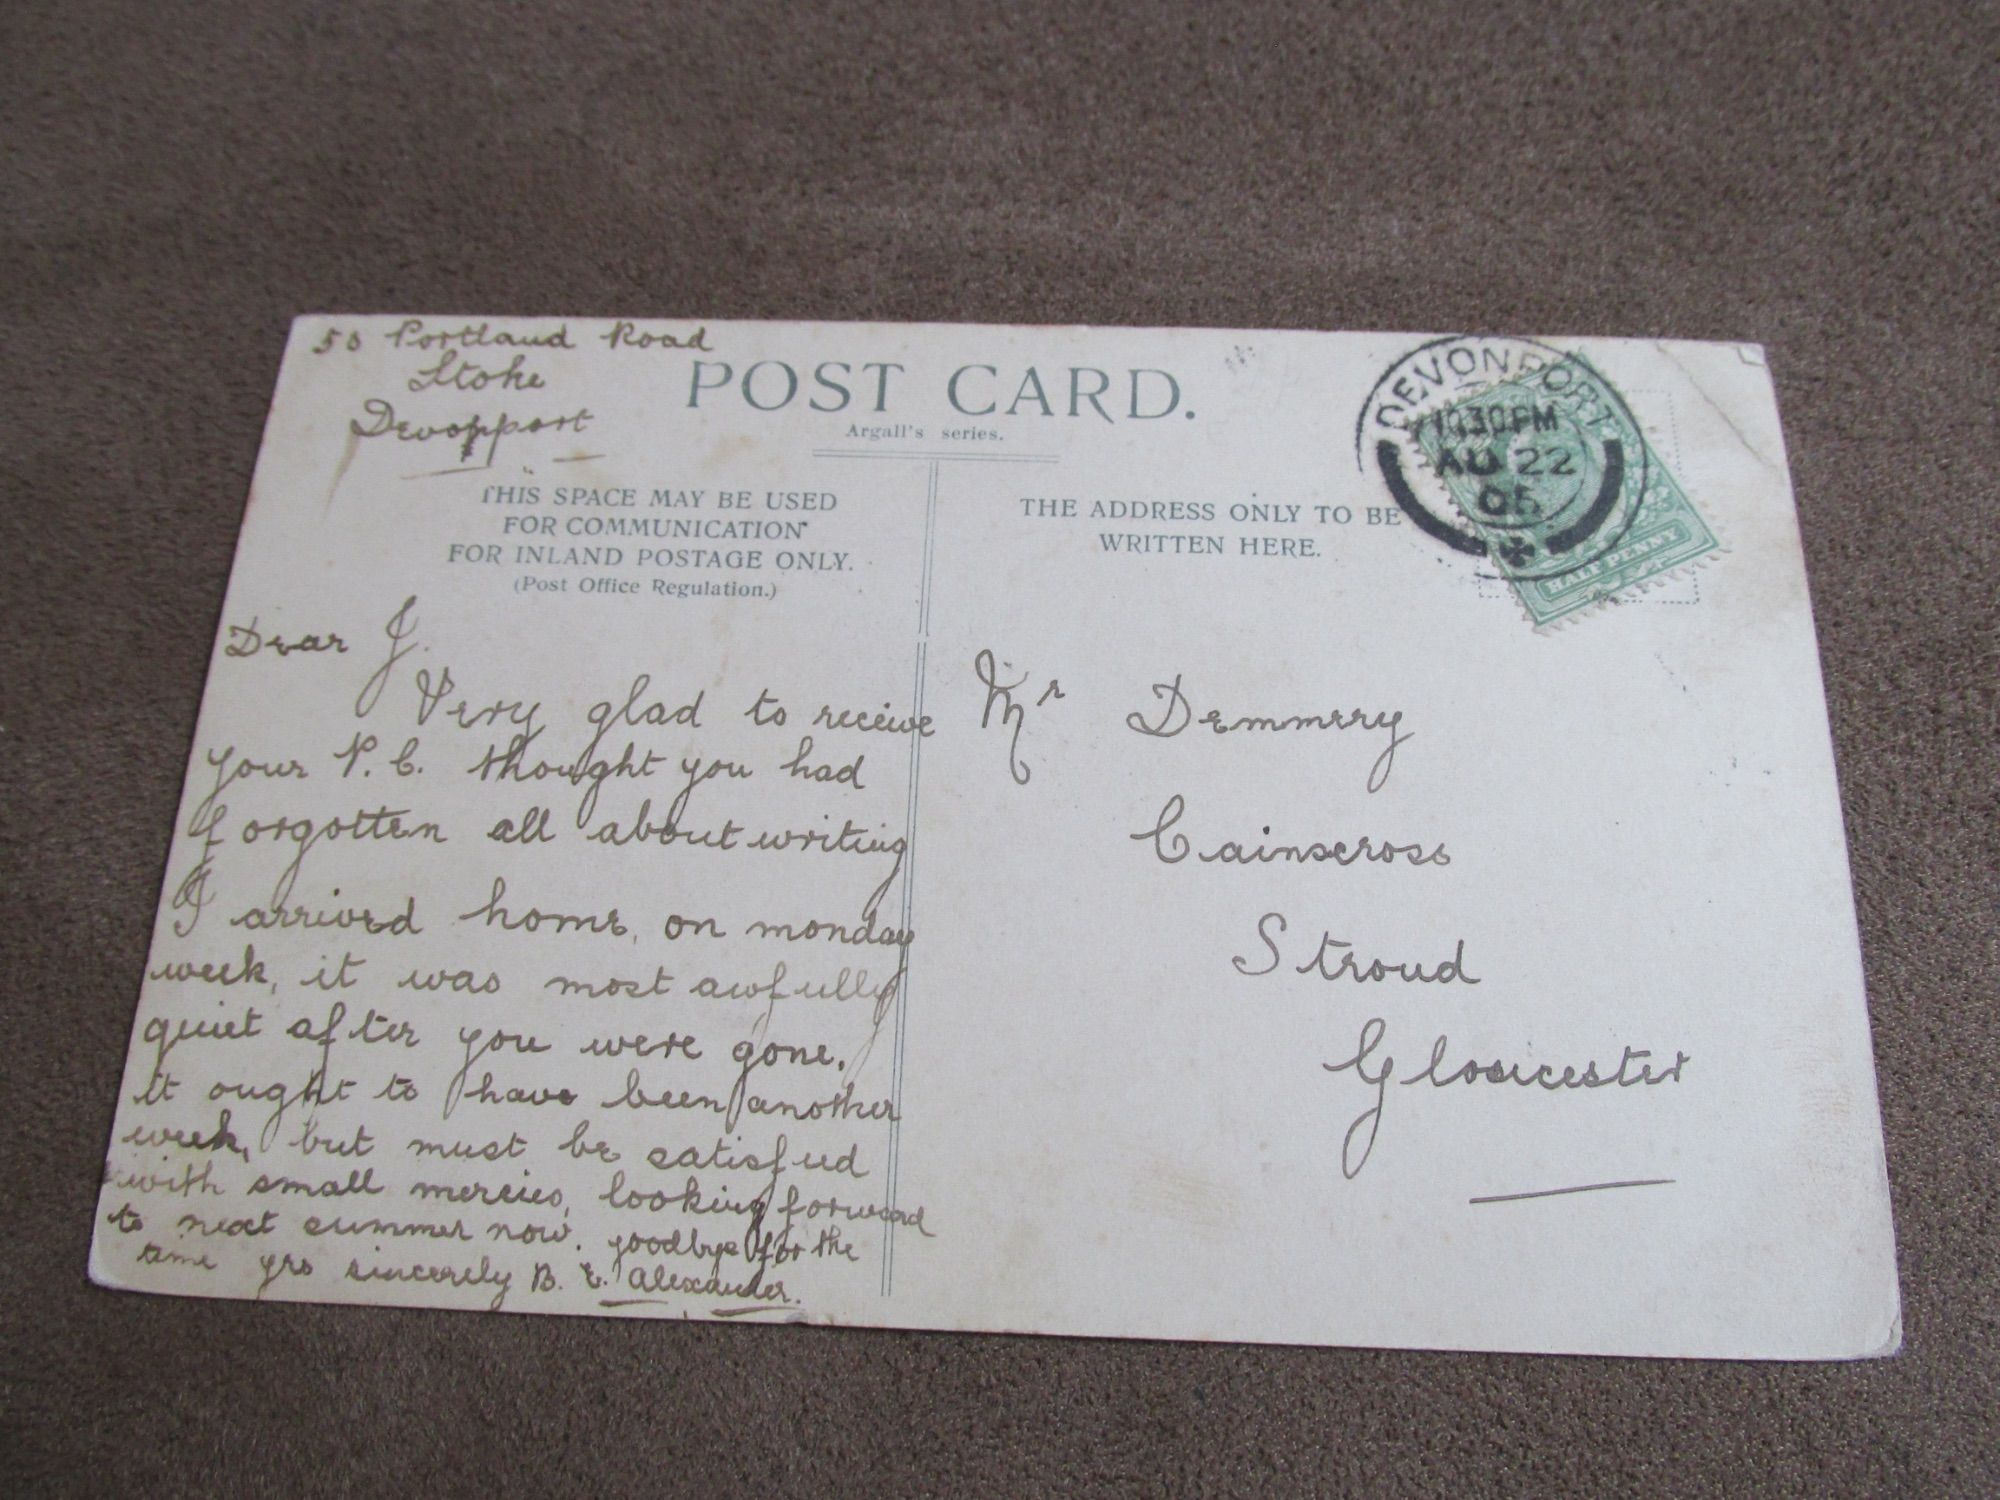 50 Portland Road
Stoke
Devonport
POST CARD.
Argall's series.
THIS SPACE MAY BE USED
FOR COMMUNICATION
FOR INLAND POSTAGE ONLY.
(Post Office Regulation.)
Dear J.
Very glad to receive
your P.C. thought you had
forgotten all about writing
I arrived home, on monday
week, it was most awfully
quiet after you were gone.
it ought to have been another
week, but must be satisfied
with small mercies, looking forward
to next summer now. goodbye for the
time yrs sincerely B. E. Alexander.
THE ADDRESS ONLY TO BE
WRITTEN HERE.
DEVONPORT
10.30PM
AU 22
05
HALF PENNY
Mr Demmery
Cainscross
Stroud
Gloucester